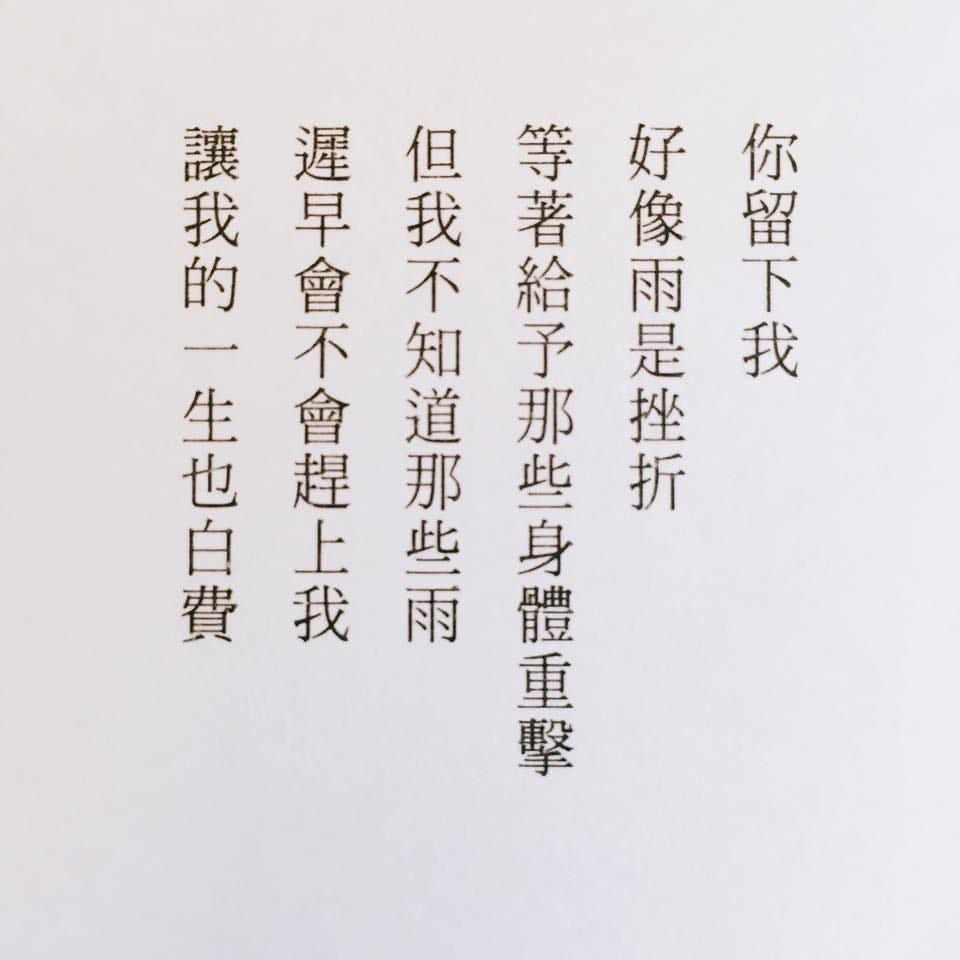 你留下我
好像雨是挫折
等著給予那些身體重擊
但我不知道那些雨
遲早會不會趕上我
讓我的一生也白費